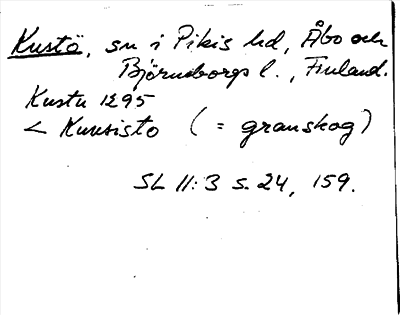 Kustö, sn i Pikis hd, Åbo och
Björneborgs l., Finland.
Kustu 1295
< Kuusisto (= granskog)
SL II:3 s. 24, 159.